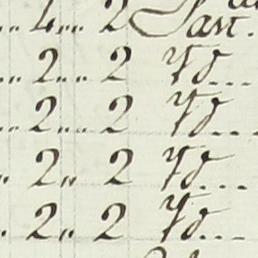 .. 4 .. 2 Last.
.. 2 .. 2 Yd ...
.. 2 .. 2 Yd ...
.. 2 .. 2 Yd ...
.. 2 .. 2 Yd ...